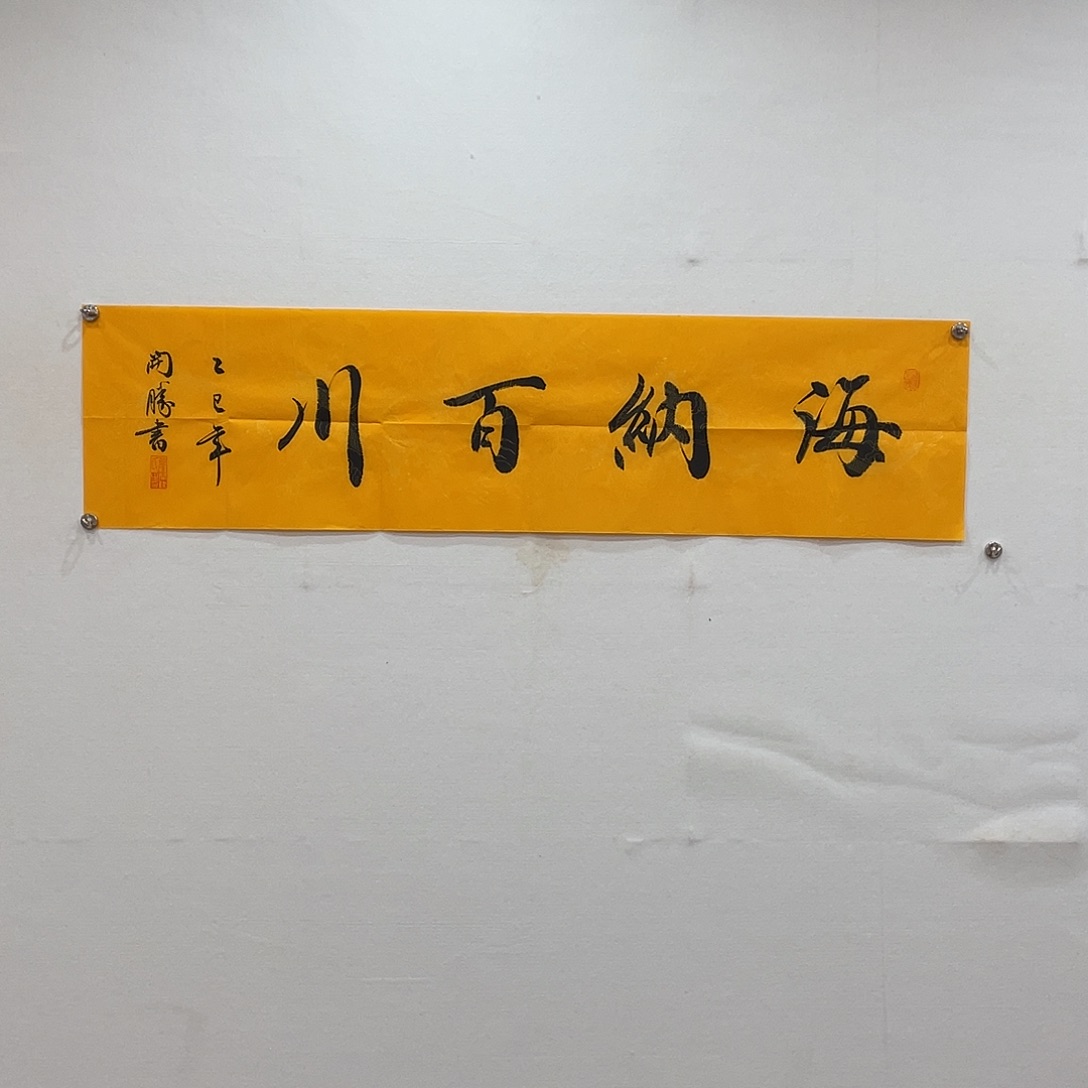 海納百川
乙巳年
開勝書